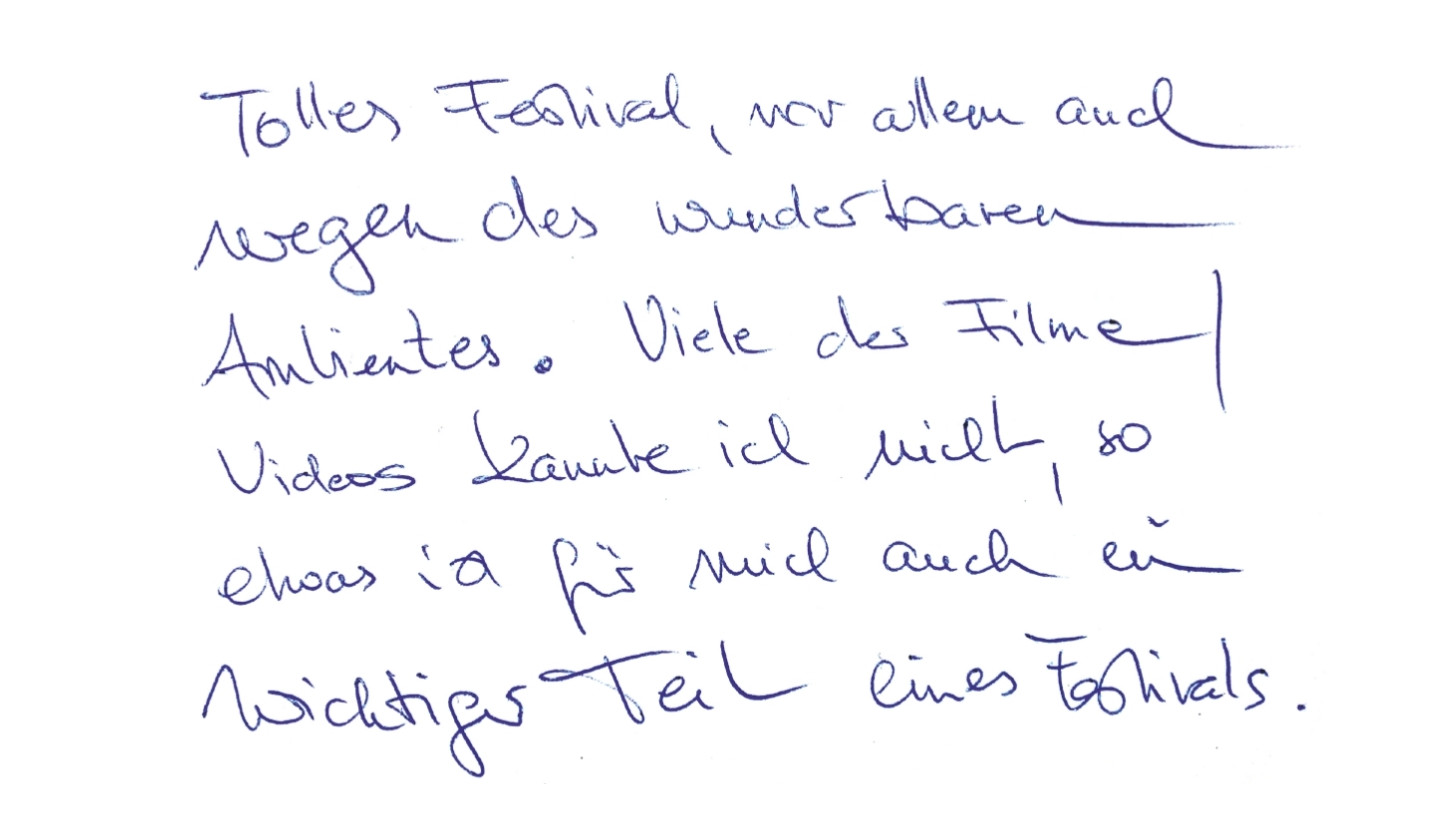 Tolles Festival, vor allem auch
wegen des wunderbaren
Ambientes. Viele der Filme/
Videos kannte ich nicht, so
etwas ist für mich auch ein
wichtiger Teil eines Festivals.